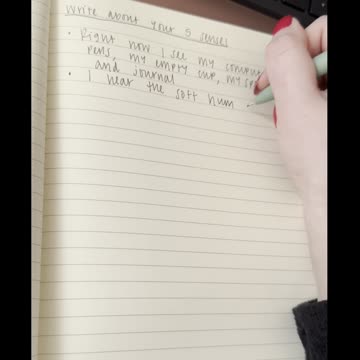 Write about your 5 senses
• Right now I see my comput
pens, my empty cup, my
and journal
• I hear the soft hum